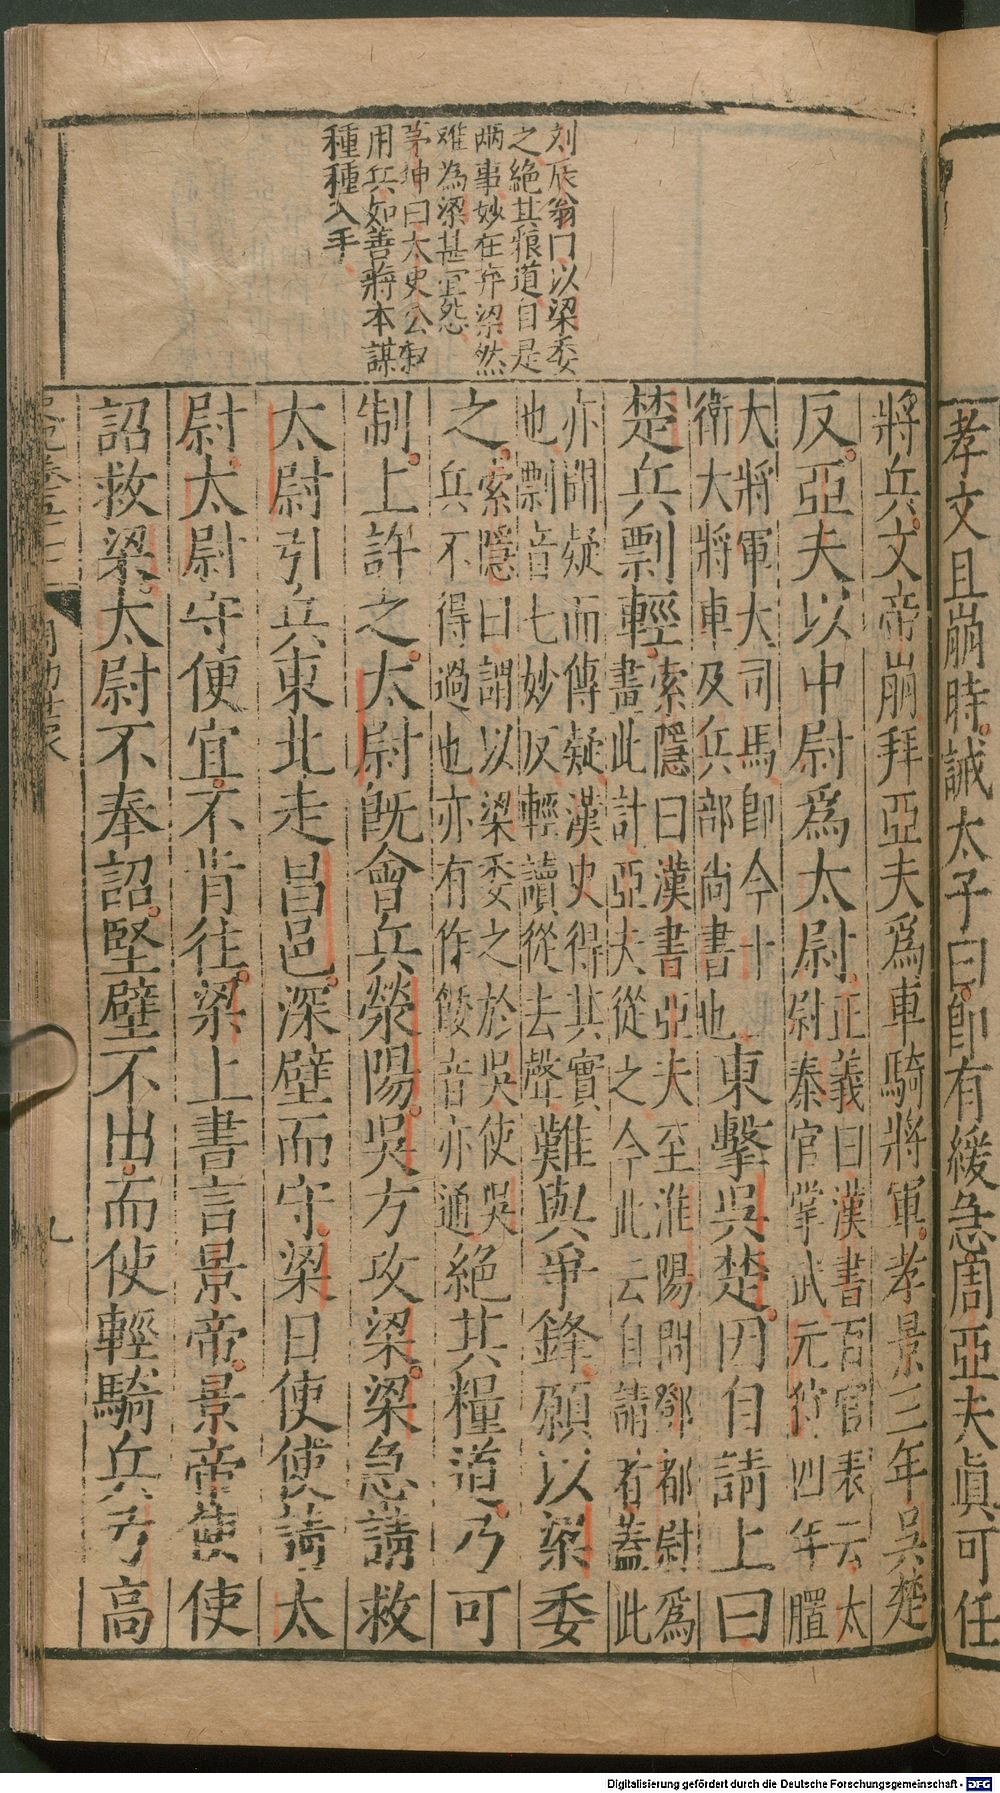 孝文且崩時誡太子曰卽有緩急周亞夫眞可任
劉辰翁曰以梁委
之絕其粮道自是
兩事妙在弃梁然
难為梁甚宜怨
茅坤曰太史公叙
用兵如善將本謀
種種入手
將兵文帝崩拜亞夫爲車騎將軍孝景三年吳楚
反亞夫以中尉爲太尉
正義曰漢書百官表云太
尉秦官掌武元狩四年置
大將軍大司馬卽今十
衛大將軍及兵部尚書也
東擊吳楚因自請上曰
楚兵剽輕
索隱曰漢書亞夫至淮陽問鄧都尉爲
畫此計亞夫從之今此云自請者蓋此
亦聞疑而傳疑漢史得其實
也剽音七妙反輕讀從去聲
難與爭鋒願以梁委
之
索隱曰謂以梁委之於吳使吳
兵不得過也亦有作餧音亦通
絕其糧道乃可
制上許之太尉既會兵滎陽吳方攻梁梁急請救
太尉引兵東北走昌邑深壁而守梁日使使請太
尉太尉守便宜不肯往梁上書言景帝景帝使使
詔救梁太尉不奉詔堅壁不出而使輕騎兵弓高
九
Digitalisierung gefördert durch die Deutsche Forschungsgemeinschaft - DFG